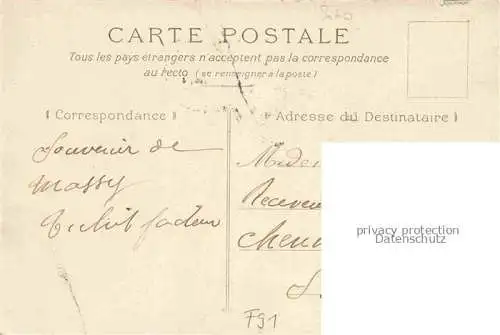 CARTE POSTALE
Tous les pays étrangers n'acceptent pas la correspondance
au recto (se renseigner à la poste)
Correspondance
Adresse du Destinataire
Souvenir de
Massy
facteur
privacy protection
Datenschutz
F91